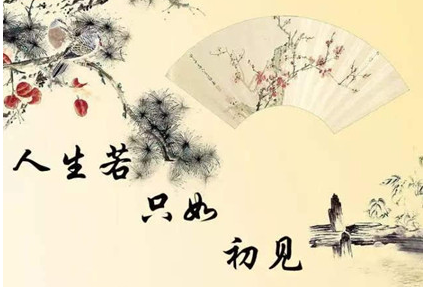 人生若
只如
初见